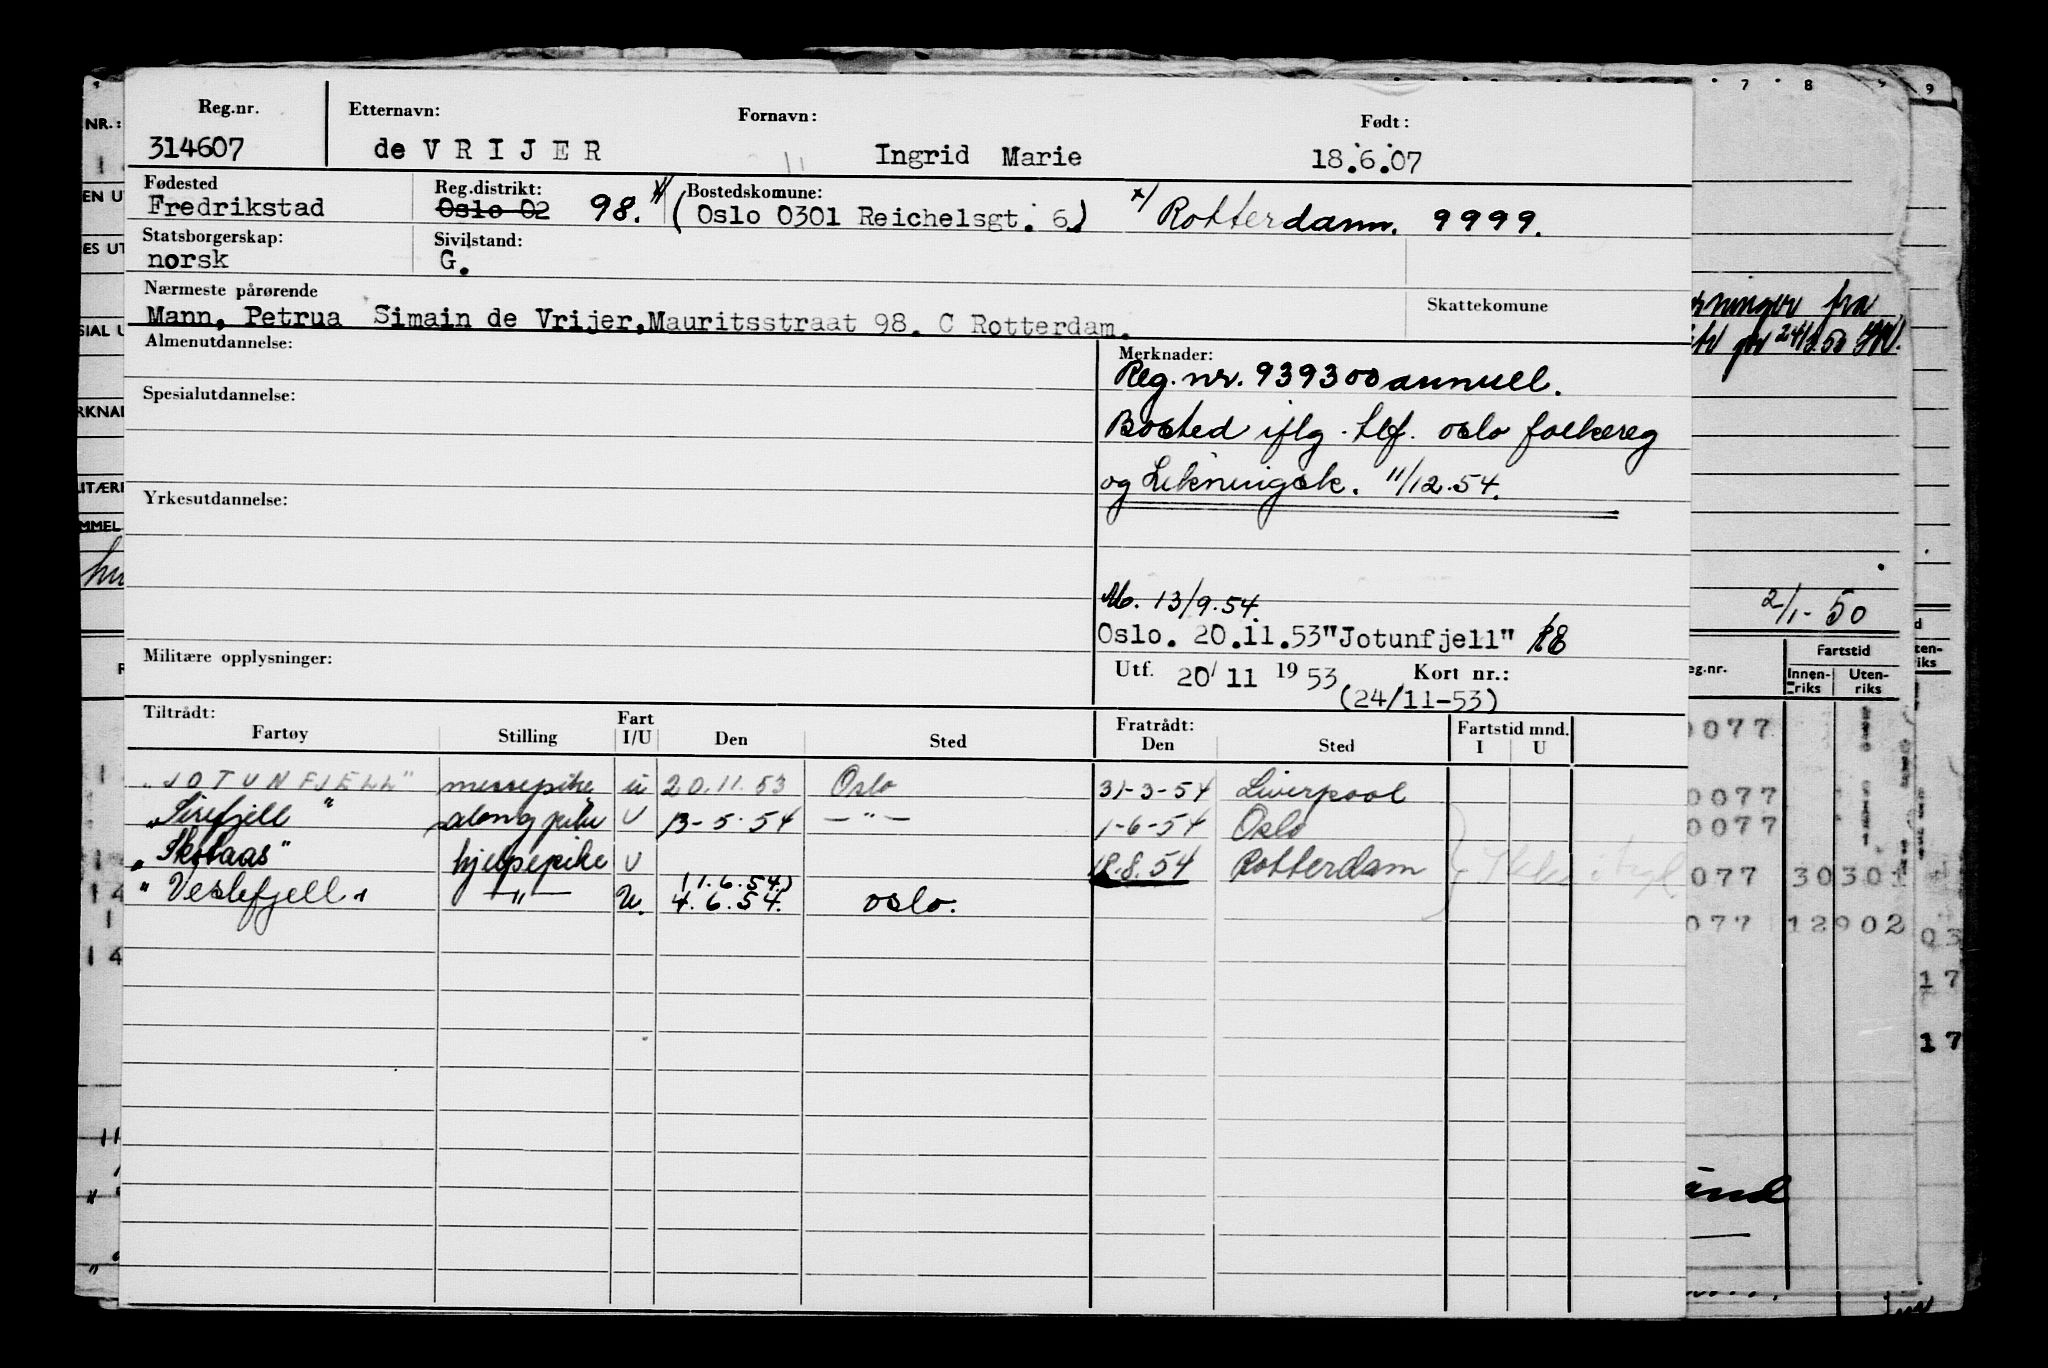 Reg.nr. Etternavn: Fornavn: Født:
314607 de VRIJER Ingrid Marie 18.6.07
Fødested Reg.distrikt: Bostedskomune:
Fredrikstad Oslo 02 98. x/ (Oslo 0301 Reichelsgt. 6) x/ Rotterdam. 9999.
Statsborgerskap: Sivilstand:
norsk G.
Nærmeste pårørende Skattekomune
Mann, Petrua Simain de Vrijer, Mauritsstraat 98. C Rotterdam.
Almenutdannelse: Merknader:
Reg. nr. 939300 annull.
Spesialutdannelse:
Bosted iflg. tlf. oslo folkereg
og Likningsk. 11/12.54.
Yrkesutdannelse:
13/9.54.
Oslo. 20.11.53 "Jotunfjell"
Militære opplysninger:
Utf. 20/11 1953 Kort nr.:
(24/11-53)
Tiltrådt: Fart Fratrådt: Fartstid mnd.
Fartøy Stilling I/U Den Sted Den Sted I U
"JOTUNFJELL" messepike u 20.11.53 Oslo 31-3-54 Liverpool
"Sirefjell" salongpike U 13-5-54 — " — 1-6-54 Oslo
"Skobaas" hjelpepike U 18.8.54 Rotterdam
(1.6.54)
"Veslefjell" — " — U. 4.6.54. oslo.
7 8 9
NR.:
fra
2/1-50
Fartstid
eg.nr. Innen-riks Uten-riks
0077
0077
0077
077 3030
077 12902
03
17
17
14
14
11